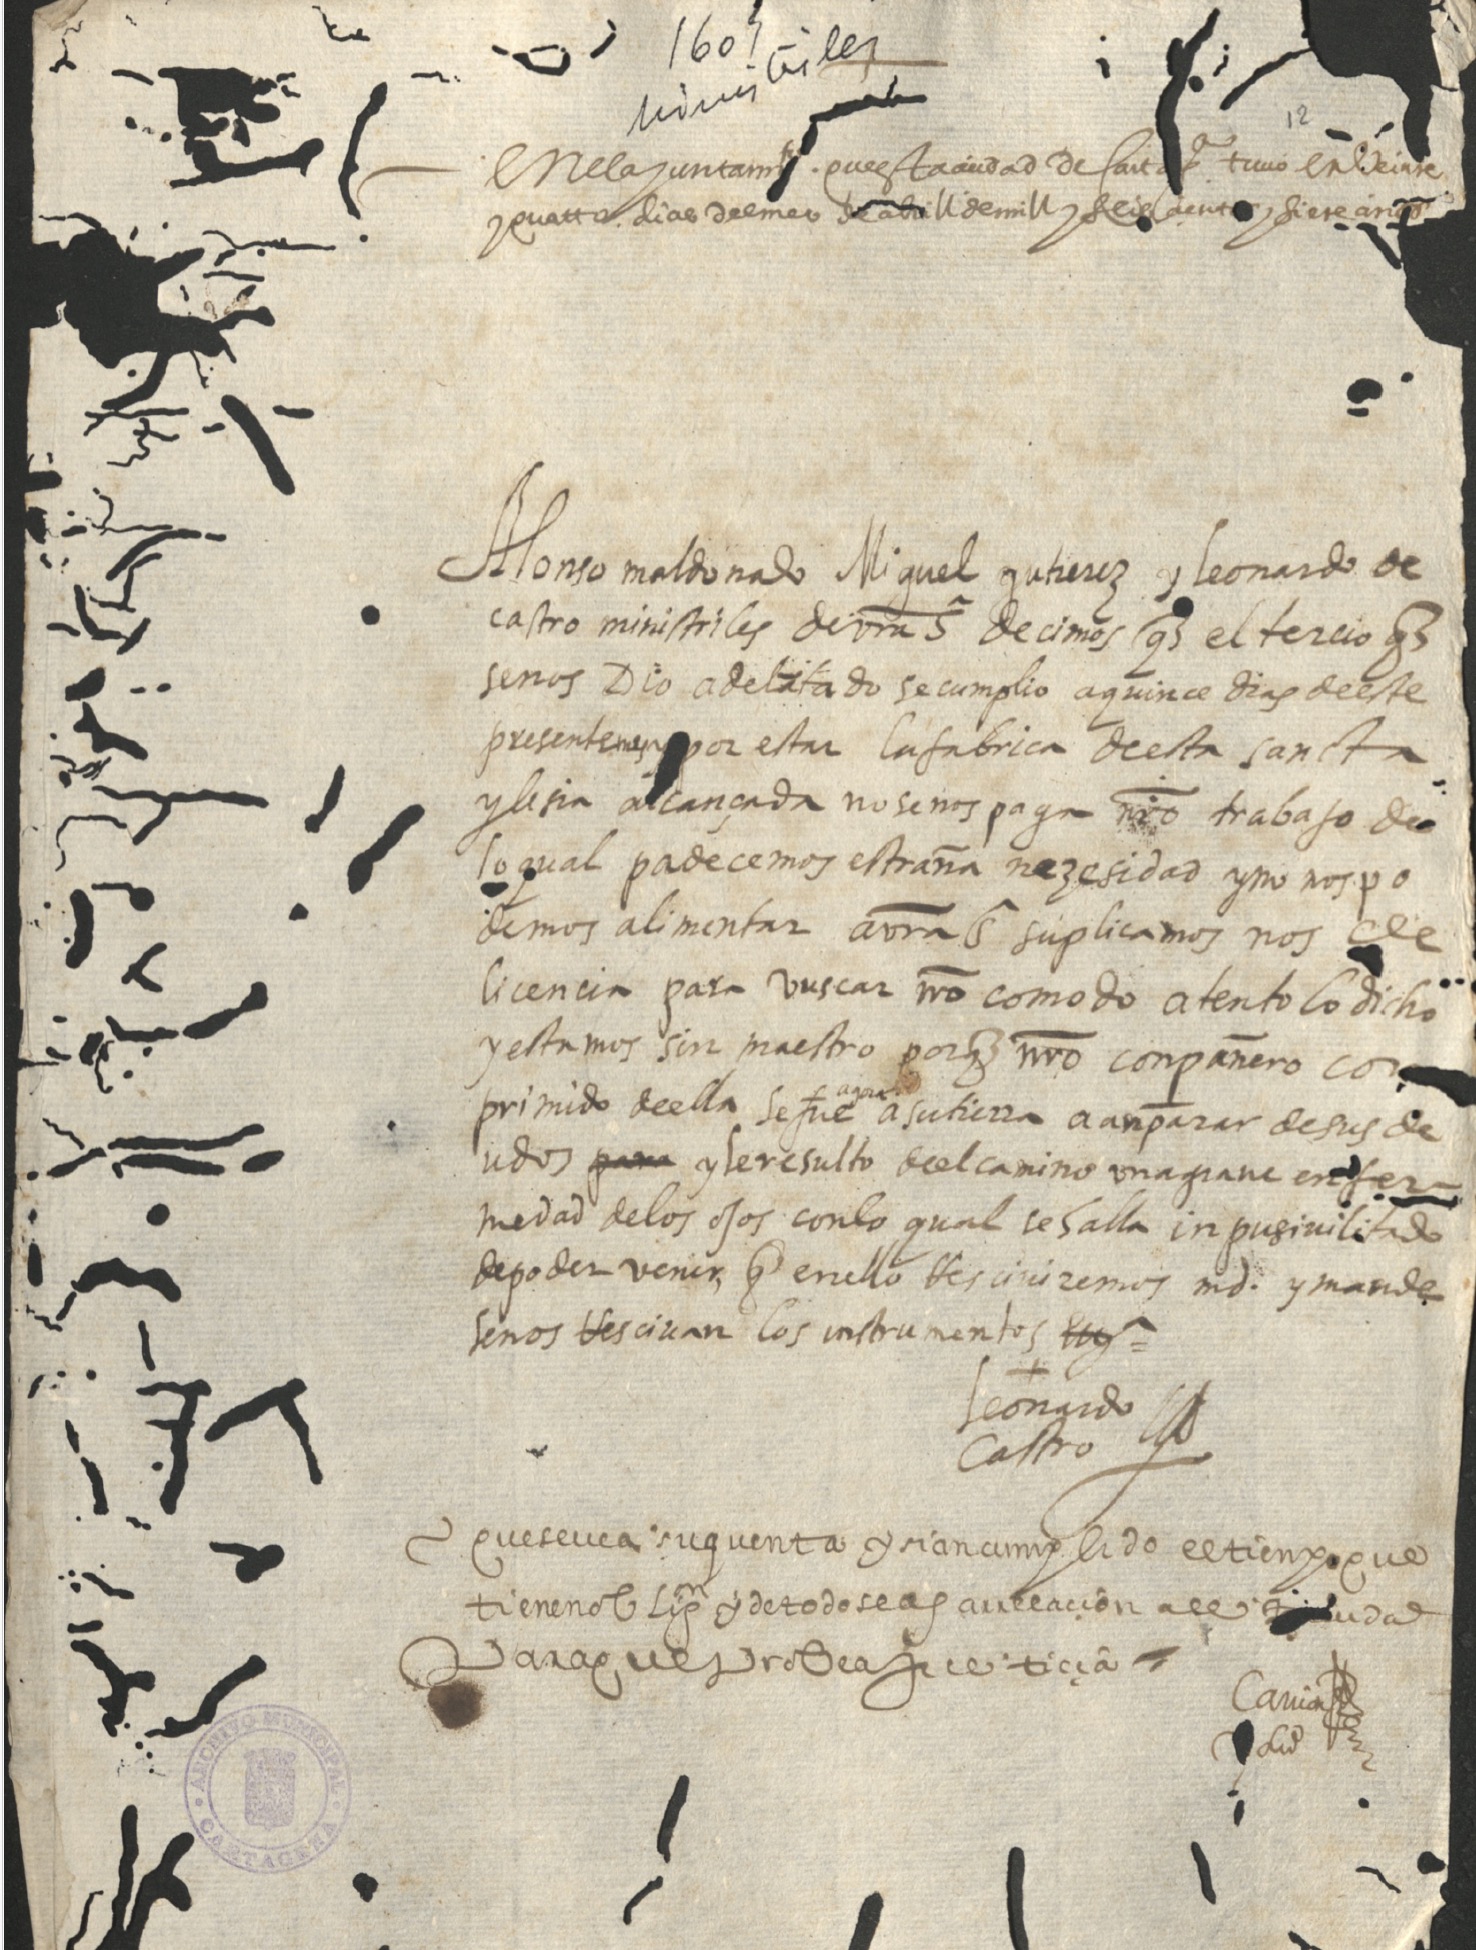 1607
ministriles
12
En el ajuntamto. que esta ciudad de Cartaga tuvo en veinte
y quatro dias del mes de abrill de mill y seiscientos y siete años
Alonso maldonado Miguel gutierez y leonardo de
castro ministriles de vra Sa decimos q̃ el tercio q̃
se nos Dio adelãtado se cumplio a quince dias de este
presente mes y por estar la fabrica de esta sancta
yglesia alcançada no se nos paga nro trabajo de
lo qual padecemos estraña nezesidad y no nos po
demos alimentar a vra Sa suplicamos nos de
licencia para vuscar nro comodo atento lo dicho
y estamos sin maestro porq̃ nro conpañero con
primido de ella se fue agora a su tierra a anparar de sus de
udos para y le resulto de el camino una grave enfer
medad de los ojos con lo qual se halla inpusivilitado
de poder venir, q̃ en ello Resciviremos md. y mande
senos Rescivan los instrumentos
Leonardo
Castro
que se vea su quenta y si an cumplido el tienpo que
tienen obligon y de todo se aga relacion a la ciudad
Para que probea justicia
ARCHIVO MUNICIPAL
CARTAGENA